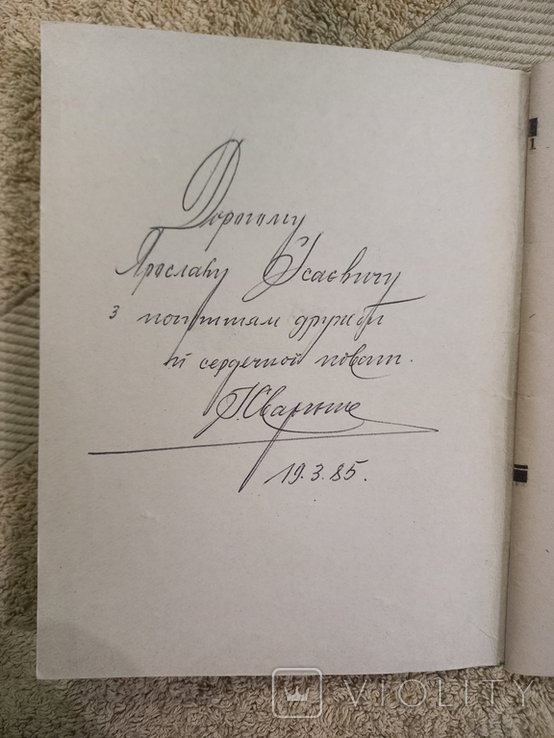 Дорогому
Ярославу Ісаєвичу
з почуттям дружби
й сердечной поваги.
19.3.85.
1.
VIOLITY